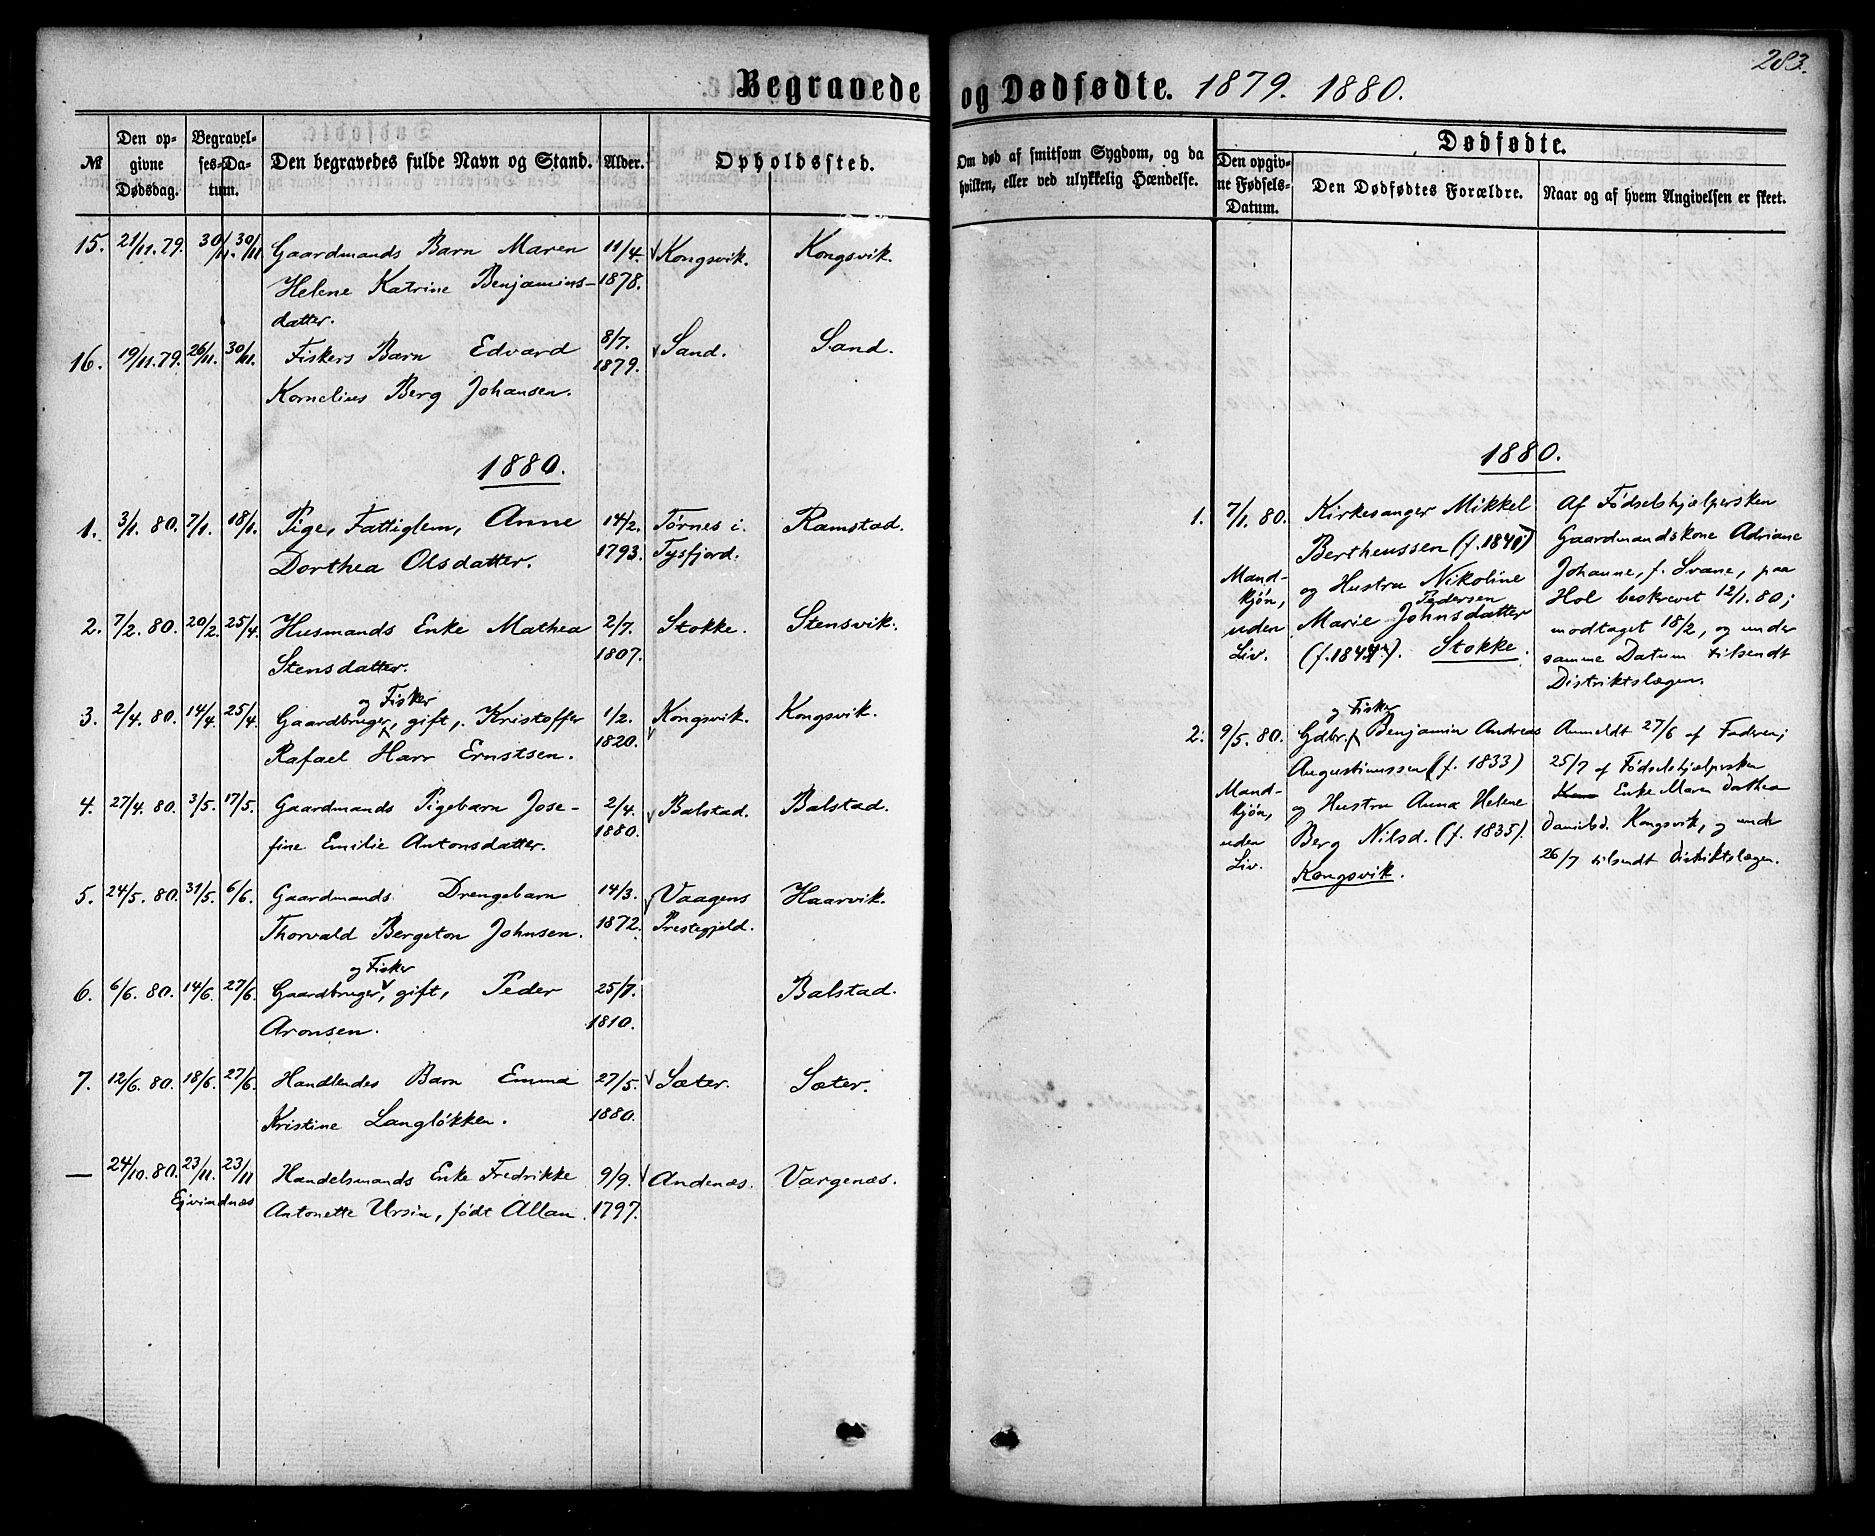 283.
Begravede og Dødfødte. 1879. 1880.
№ Den opgivne Dødsdag. Begravelses-Datum. Den begravedes fulde Navn og Stand. Alder. Opholdssted. Om død af smitsom Sygdom, og da hvilken, eller ved ulykkelig Hændelse.
Dødfødte.
Den opgivne Fødsels-Datum. Den Dødfødtes Forældre. Naar og af hvem Angivelsen er skeet.
15. 21/11.79. 30/11. 30/11 Gaardmands Barn Maren 11/4. Kongsvik. Kongsvik.
Helene Katrine Benjamins- 1878.
datter.
16. 19/11.79. 26/11. 30/11. Fiskers Barn Edvard 8/7. Sand. Sand.
Kornelius Berg Johansen. 1879.
1880.
1. 3/1. 80. 7/1. 18/1. Pige, Fattiglem, Anne 14/2. Tørnes i Ramstad.
Dorthea Olsdatter. 1793. Tysfjord.
2. 7/2. 80. 20/2. 25/4. Husmands Enke Mathea 2/7. Stokke. Stensvik.
Stensdatter. 1807.
og Fisker
3. 2/4. 80. 14/4. 25/4. Gaardbruger, gift, Kristoffer 1/2. Kongsvik. Kongsvik.
Rafael Harr Ernstsen. 1820.
4. 27/4. 80. 3/5. 17/5. Gaardmands Pigebarn Jose- 2/4. Balstad. Balstad.
fine Emilie Antonsdatter. 1880.
5. 24/5. 80. 31/5. 6/6. Gaardmands Drengebarn 14/3. Vaagens Haarvik.
Thorvald Bergeton Johnsen. 1872. Prestegjeld.
og Fisker
6. 6/6. 80. 14/6. 27/6. Gaardbruger, gift, Peder 25/7. Balstad.
Aronsen. 1810.
7. 12/6. 80. 18/6. 27/6. Handlendes Barn Emma 27/5. Sæter. Sæter.
Kristine Langløkken. 1880.
— 24/10. 80. 23/11. 23/11 Handelsmands Enke Fredrikke 9/9. Andenæs. Vargenæs.
Ejvindnæs Antonette Ursin, født Allan. 1797.
1880.
1. 7/1. 80. Kirkesanger Mikkel
Bertheussen (f. 1840)
Mand- og Hustru Nikoline
kjøn, Pedersen
uden Marie Johnsdatter
Liv. (f. 1844). Stokke.
Af Fødselshjælpersken
Gaardmandskone Adriane
Johanne, f. Svane, paa
Hol beskrevet 12/1. 80;
modtaget 18/2, og under
samme Datum tilsendt
Distriktslægen.
og Fisker
2. 9/5. 80. Gdbr. Benjamin Andreas
Augustinussen (f. 1833)
Mand- og Hustru Anna Helene
kjøn,
uden Berg Nilsd. (f. 1835).
Liv. Kongsvik.
Anmeldt 27/6 af Faderen;
25/7 af Fødselshjælpersken
Enke Maren Dorthea
Danielsd. Kongsvik, og under
26/7 tilsendt Distriktslægen.